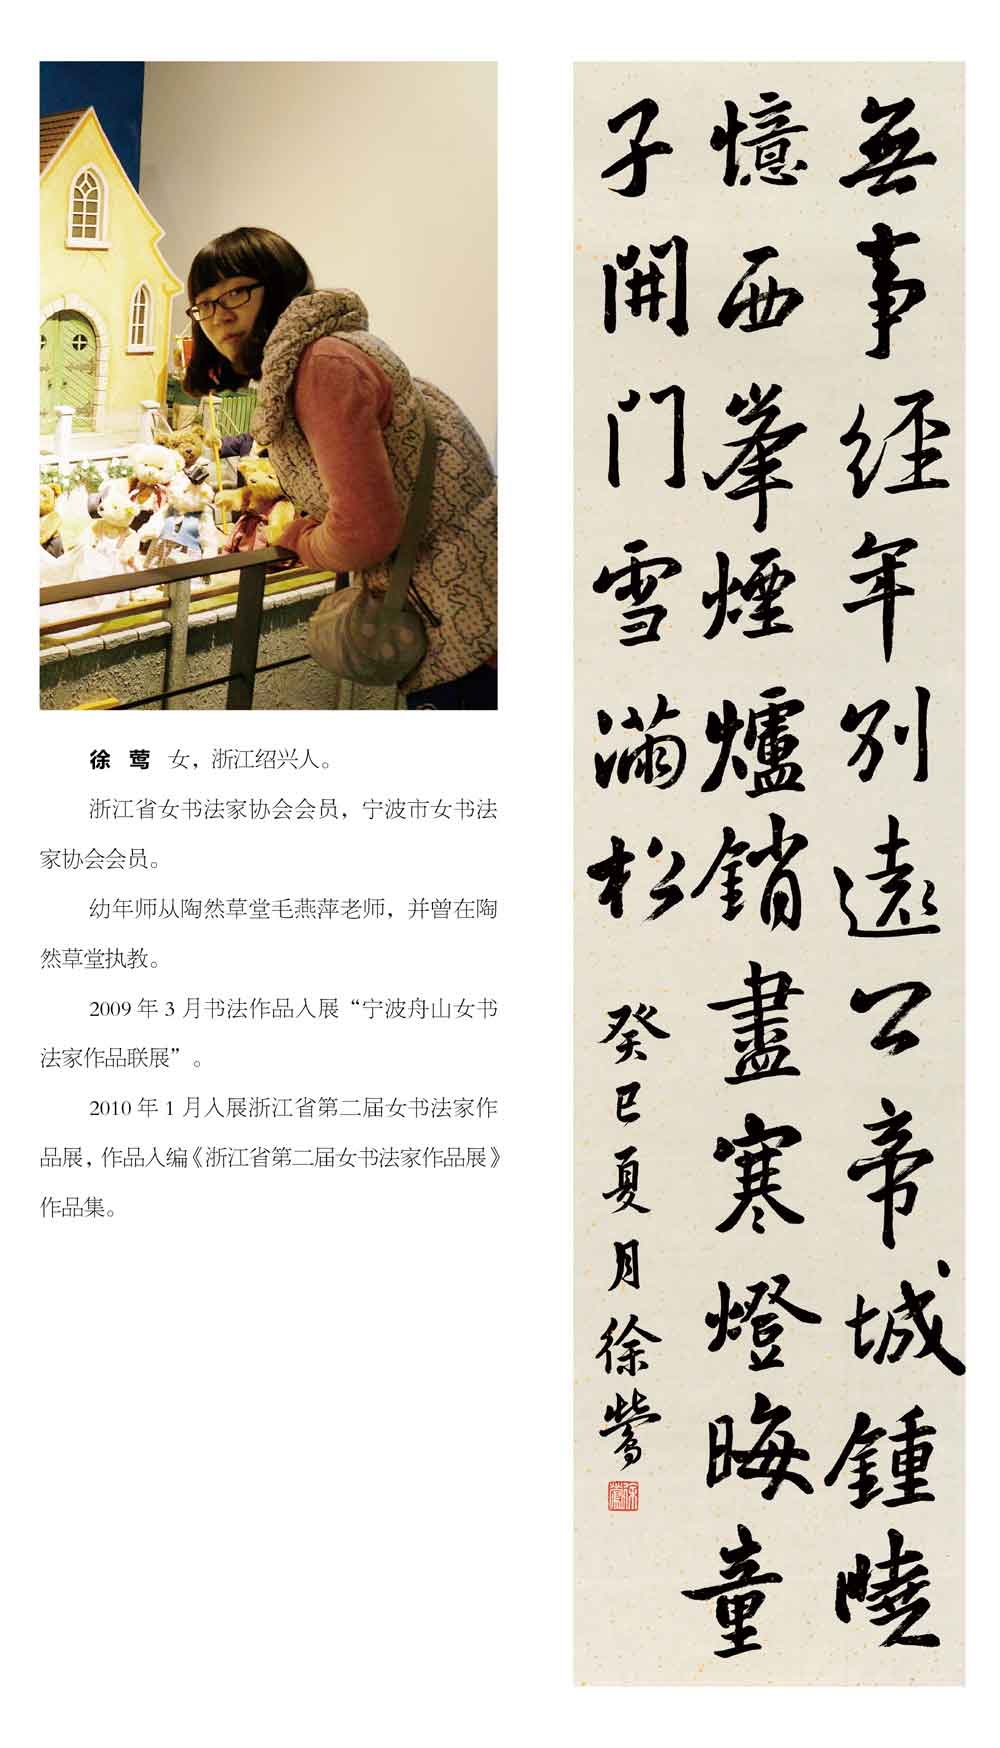 徐 莺 女，浙江绍兴人。
浙江省女书法家协会会员，宁波市女书法
家协会会员。
幼年师从陶然草堂毛燕萍老师，并曾在陶
然草堂执教。
2009 年 3 月书法作品入展“宁波舟山女书
法家作品联展”。
2010 年 1 月入展浙江省第二届女书法家作
品展，作品入编《浙江省第二届女书法家作品展》
作品集。
無事經年別遠公帝城鍾曉
憶西峯煙爐銷盡寒燈晦童
子開門雪滿松
癸巳夏月徐鶯